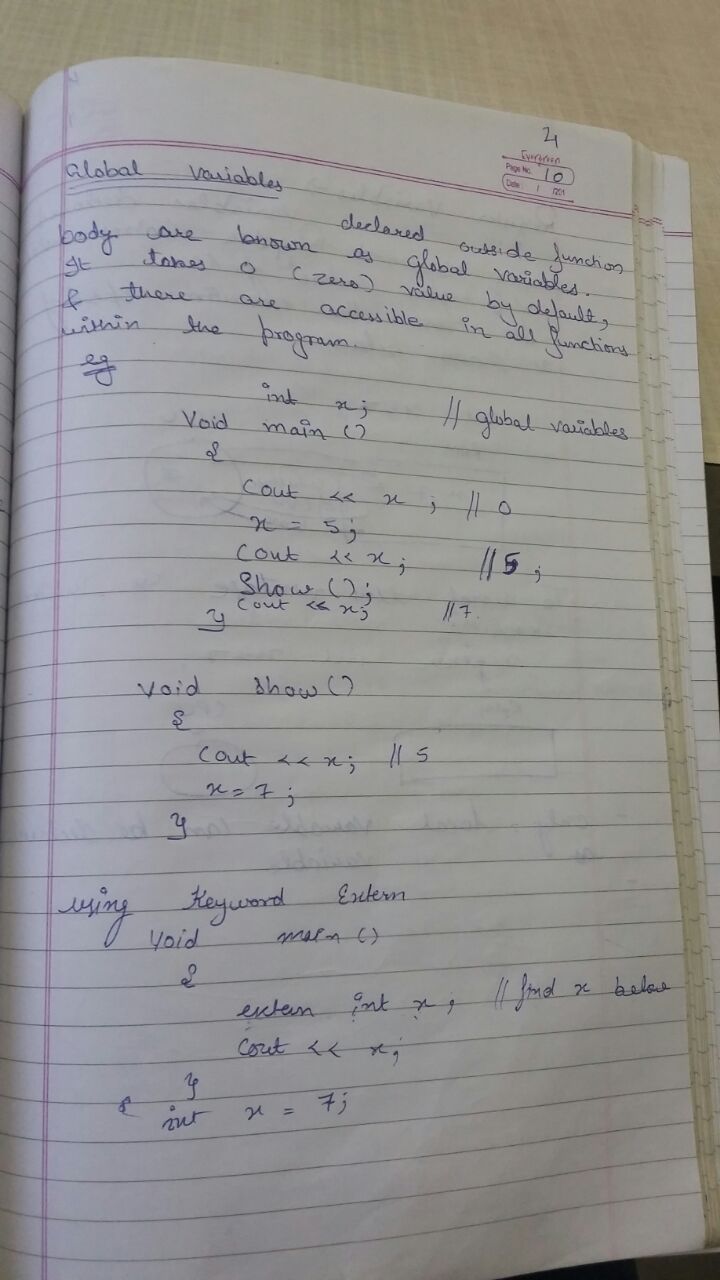 4
Evergreen
Page No. 10
Date: / /201
Global Variables
declared outside function
body are known as global variables.
It takes 0 (zero) value by default,
& there are accessible in all functions
within the program.
eg
int x; // global variables
Void main ()
{
Cout << x ; // 0
x = 5;
Cout << x; // 5;
Show ();
Cout << x; // 7.
}
Void Show ()
{
Cout << x; // 5
x = 7;
}
using Keyword Extern
Void main ()
{
extern int x; // find x below
Cout << x;
}
int x = 7;